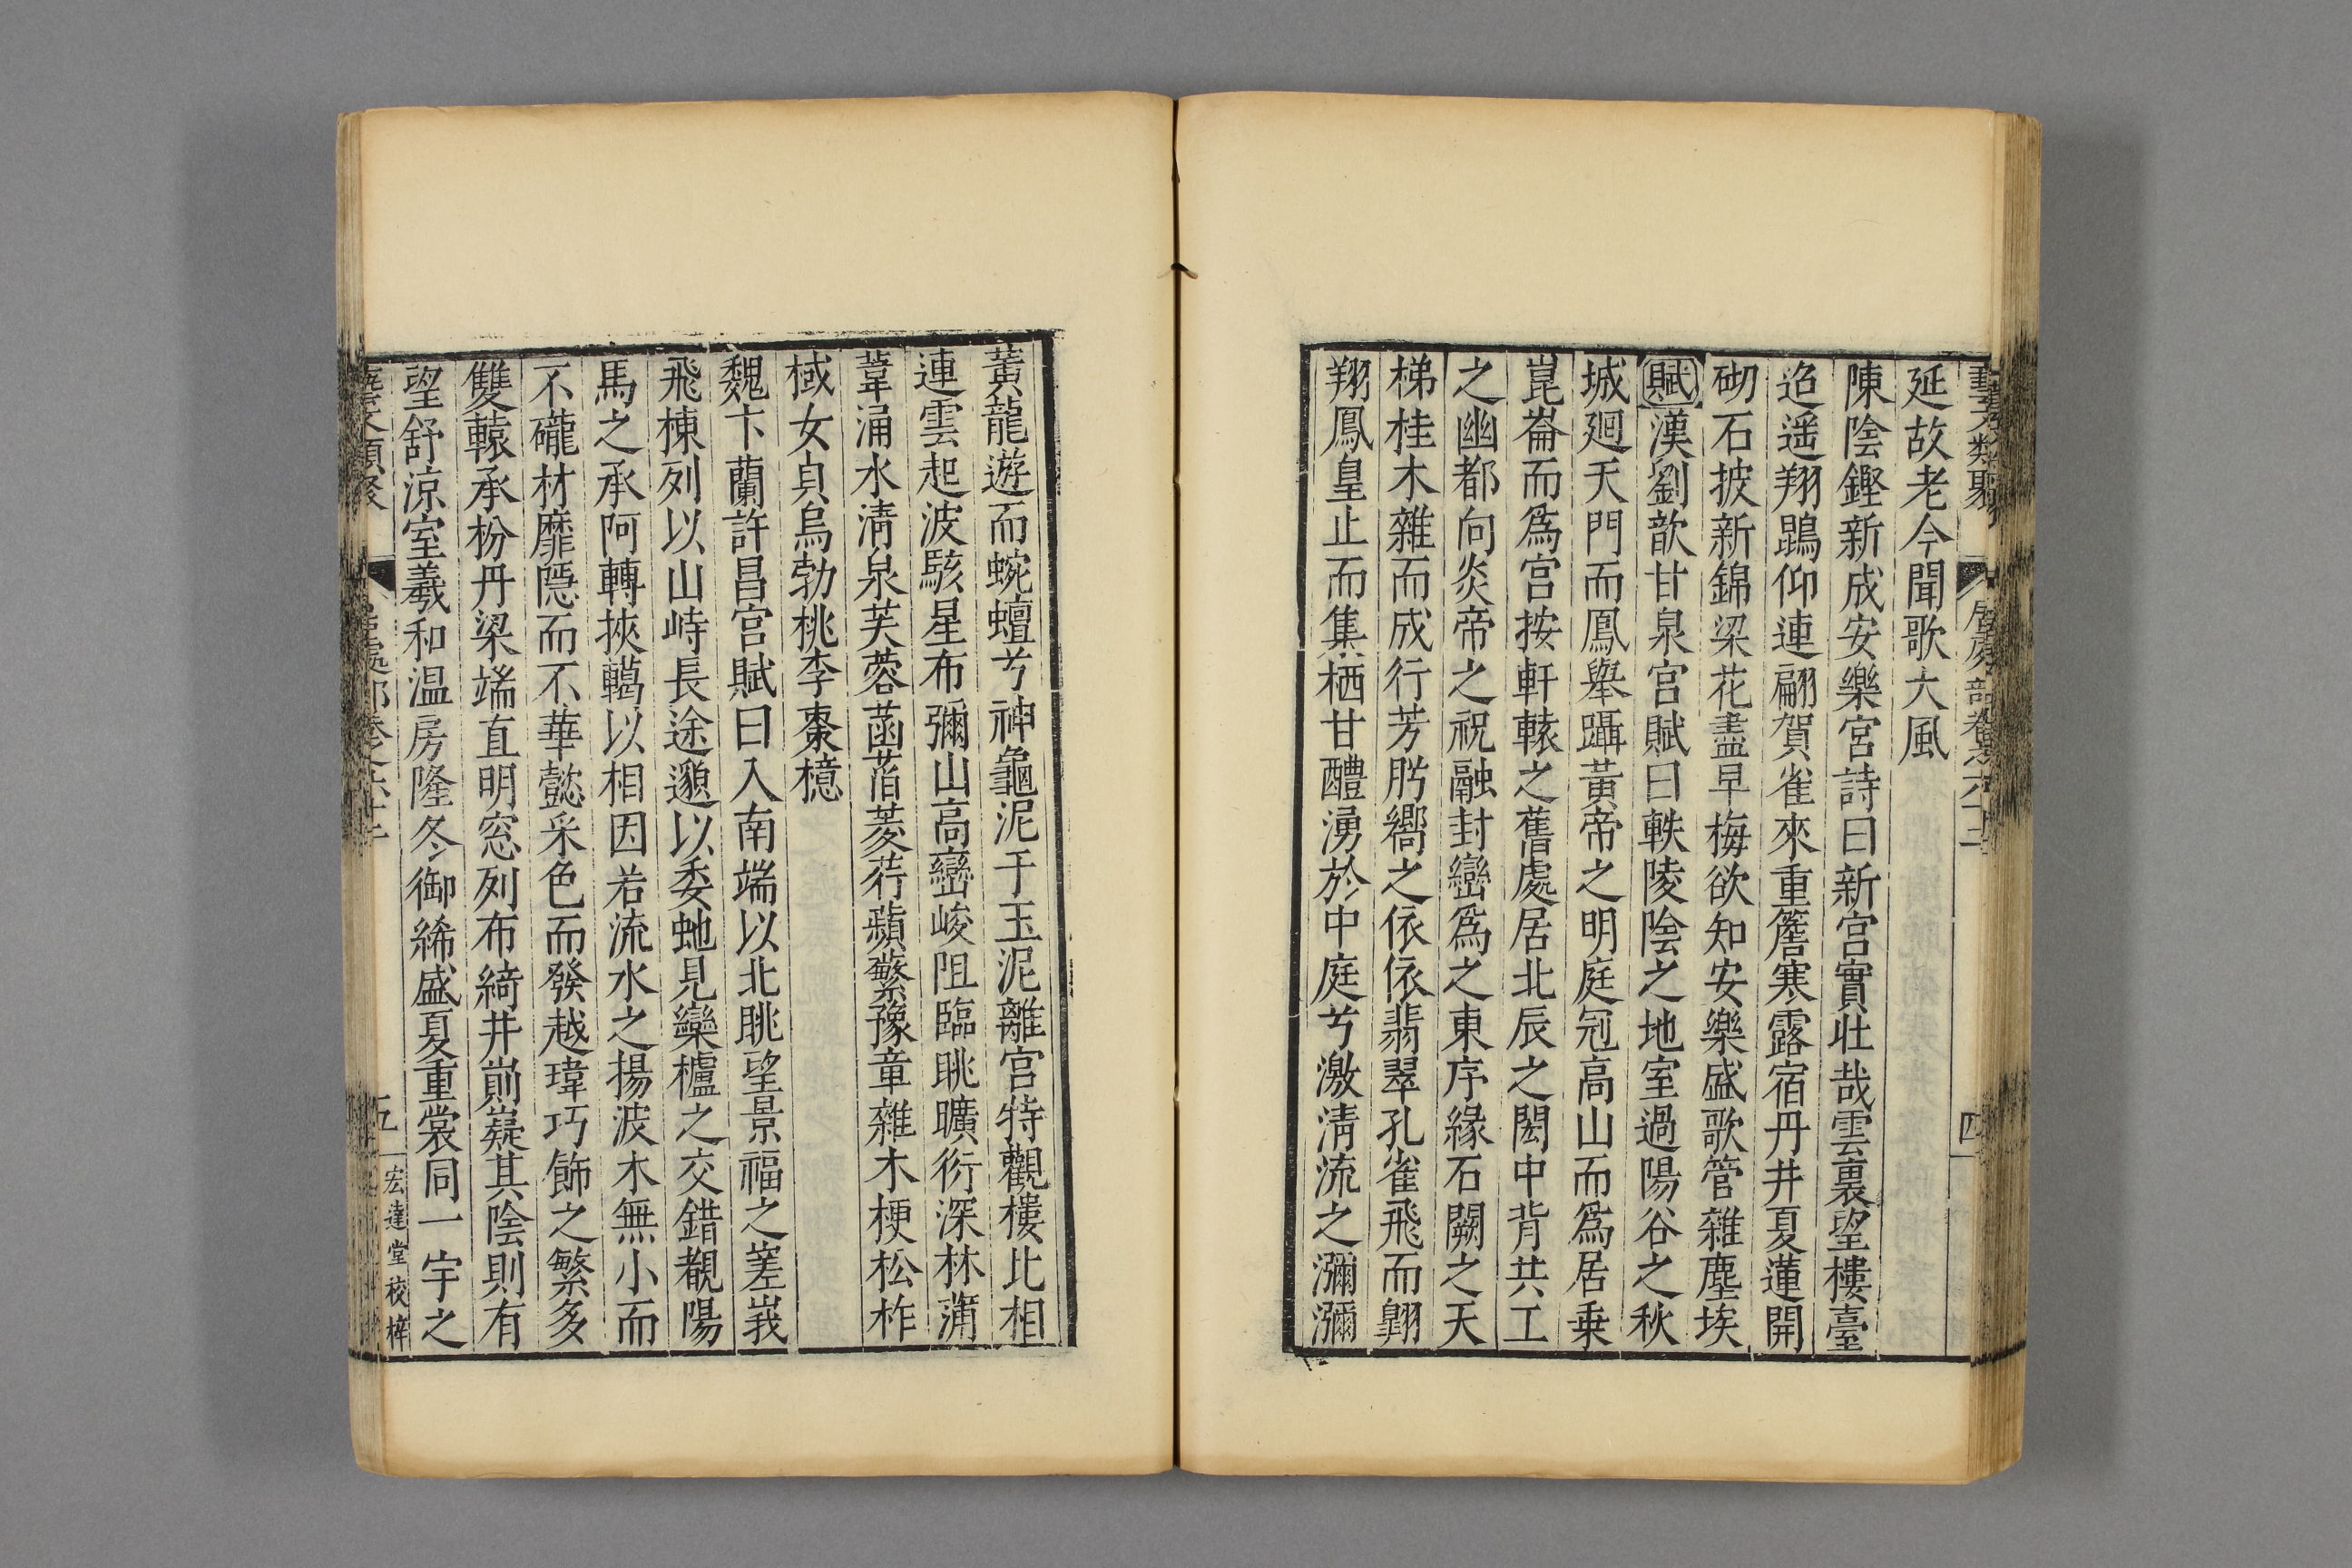 藝文類聚 居處部卷之六十二 四
延故老今聞歌大風
陳陰鏗新成安樂宮詩曰新宮實壯哉雲裏望樓臺
迢遥翔鵾仰連翩賀雀來重簷寒露宿丹井夏蓮開
砌石披新錦梁花畫早梅欲知安樂盛歌管雜塵埃
賦漢劉歆甘泉宮賦曰軼陵陰之地室過陽谷之秋
城迴天門而鳳舉躡黃帝之明庭冠高山而爲居乗
崑崙而爲宮按軒轅之舊處居北辰之閎中背共工
之幽都向炎帝之祝融封巒爲之東序緣石闕之天
梯桂木雜而成行芳肹嚮之依依翡翠孔雀飛而翺
翔鳳皇止而集栖甘醴湧於中庭兮激清流之瀰瀰
黃龍遊而蜿蟺兮神龜泥于玉泥離宮特觀樓比相
連雲起波駭星布彌山高巒峻阻臨眺曠衍深林蒲
葦涌水清泉芙蓉菡萏菱荇蘋蘩豫章雜木梗松柞
棫女貞烏勃桃李棗檍
魏卞蘭許昌宮賦曰入南端以北眺望景福之嵳峩
飛棟列以山峙長途邈以委虵見欒櫨之交錯覩陽
馬之承阿轉挾轕以相因若流水之揚波木無小而
不礲材靡隱而不華懿采色而發越瑋巧飾之繁多
雙轅承枌丹梁端直明窓列布綺井崱嶷其陰則有
望舒凉室羲和温房隆冬御絺盛夏重裳同一宇之
藝文類聚 居處部卷之六十二 五 宏達堂校梓